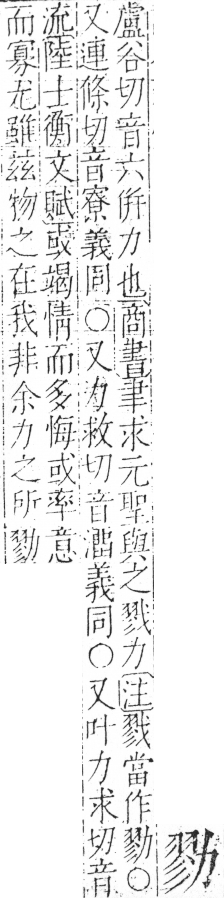 勠
盧谷切音六倂力也商書聿求元聖與之戮力注戮當作勠○
又連條切音寮義同○又力救切音溜義同○又叶力求切音
流陸士衡文賦或竭情而多悔或率意
而寡尤雖茲物之在我非余力之所勠